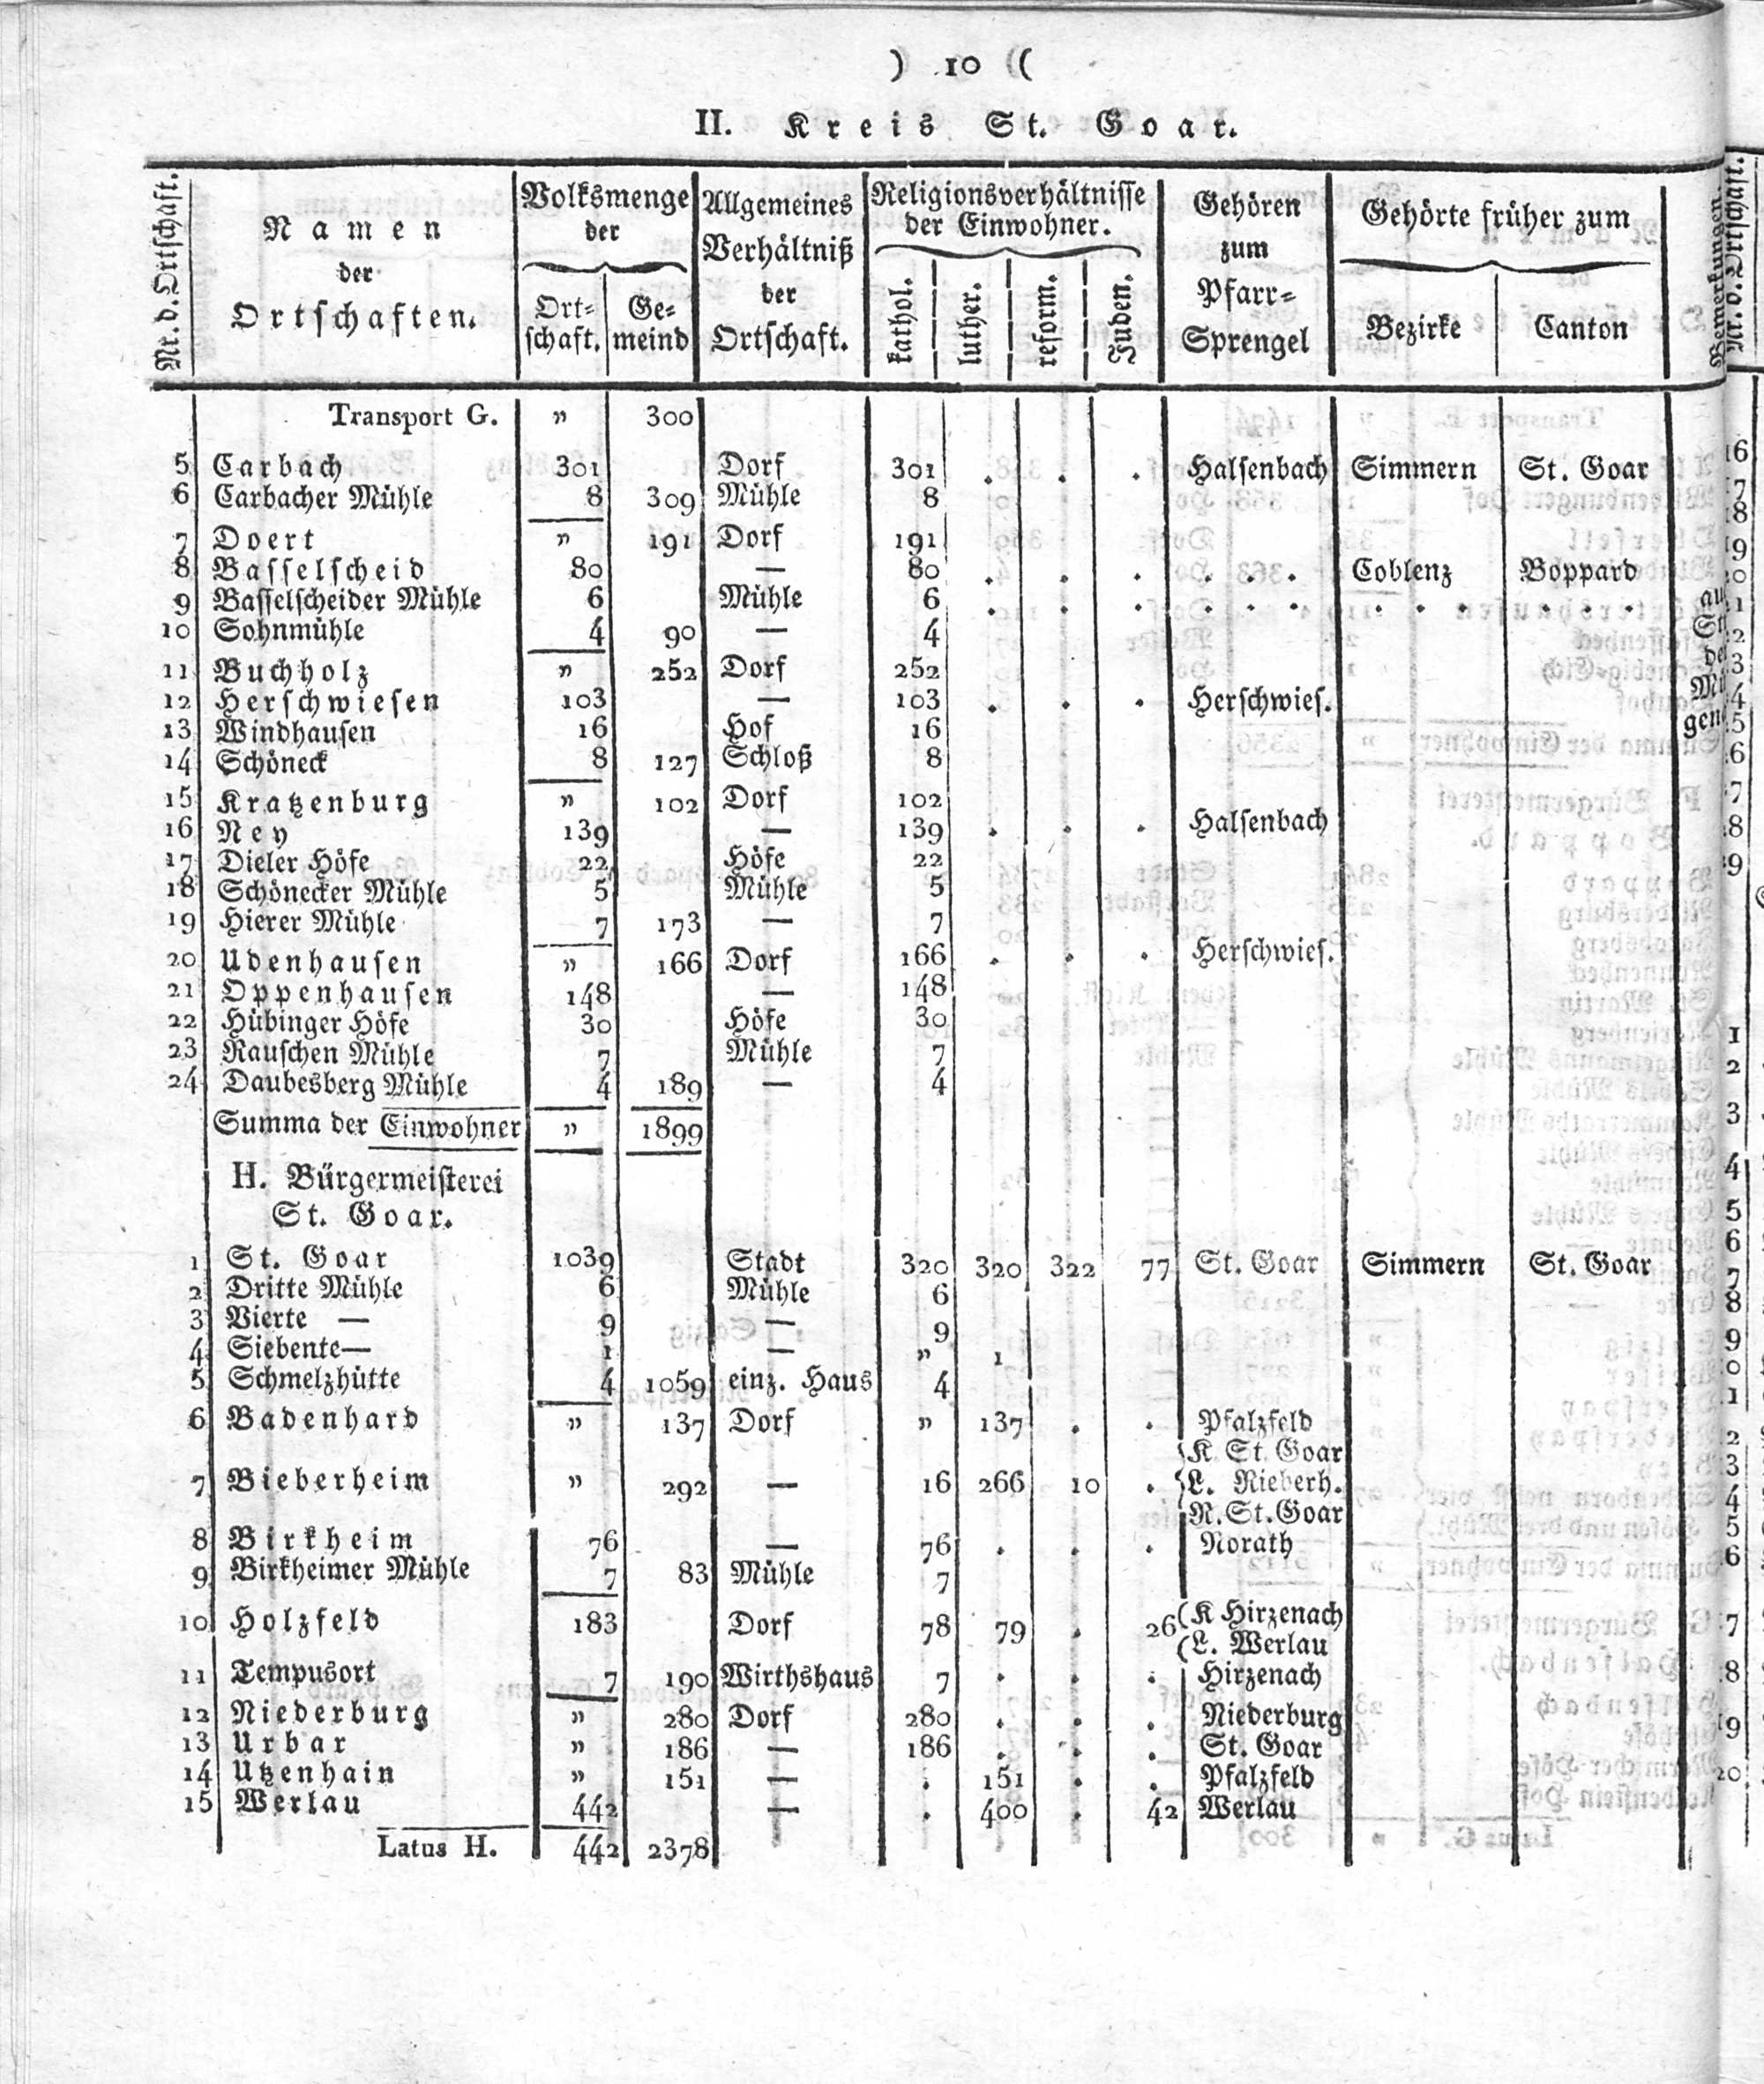 ) 10 (
II. Kreis St. Goar.
Nr. d. Ortschaft. Namen der Ortschaften. Volksmenge der Ort=schaft. Ge=meind Allgemeines Verhältniß der Ortschaft. Religionsverhältnisse der Einwohner. kathol. luther. reform. Juden. Gehören zum Pfarr=Sprengel Gehörte früher zum Bezirke Canton Bemerkungen.
Transport G. " 300
5 Carbach 301 Dorf 301 . . . Halsenbach Simmern St. Goar
6 Carbacher Mühle 8 309 Mühle 8
7 Doert " 191 Dorf 191
8 Basselscheid 80 — 80 . . . . . . Coblenz Boppard
9 Basselscheider Mühle 6 Mühle 6 . . . . . . . . . . . . .
10 Sohnmühle 4 90 — 4
11 Buchholz " 252 Dorf 252
12 Herschwiesen 103 — 103 . . . Herschwies.
13 Windhausen 16 Hof 16
14 Schöneck 8 127 Schloß 8
15 Kratzenburg " 102 Dorf 102
16 Ney 139 — 139 . . . Halsenbach
17 Dieler Höfe 22 Höfe 22
18 Schönecker Mühle 5 Mühle 5
19 Hierer Mühle 7 173 — 7
20 Udenhausen " 166 Dorf 166 . . . Herschwies.
21 Oppenhausen 148 — 148
22 Hübinger Höfe 30 Höfe 30
23 Rauschen Mühle 7 Mühle 7
24 Daubesberg Mühle 4 189 — 4
Summa der Einwohner " 1899
H. Bürgermeisterei
St. Goar.
1 St. Goar 1039 Stadt 320 320 322 77 St. Goar Simmern St. Goar
2 Dritte Mühle 6 Mühle 6
3 Vierte — 9 — 9
4 Siebente — 1 — " 1
5 Schmelzhütte 4 1059 einz. Haus 4
6 Badenhard " 137 Dorf " 137 . . Pfalzfeld
7 Bieberheim " 292 — 16 266 10 . K St. Goar
L. Nieberh.
R. St. Goar
8 Birkheim 76 — 76 . . . Norath
9 Birkheimer Mühle 7 83 Mühle 7
10 Holzfeld 183 Dorf 78 79 . 26 (K Hirzenach
(L. Werlau
11 Tempusort 7 190 Wirthshaus 7 . . . Hirzenach
12 Niederburg " 280 Dorf 280 . . . Niederburg
13 Urbar " 186 — 186 . . . St. Goar
14 Utzenhain " 151 — . 151 . . Pfalzfeld
15 Werlau 442 — . 400 . 42 Werlau
Latus H. 442 2378